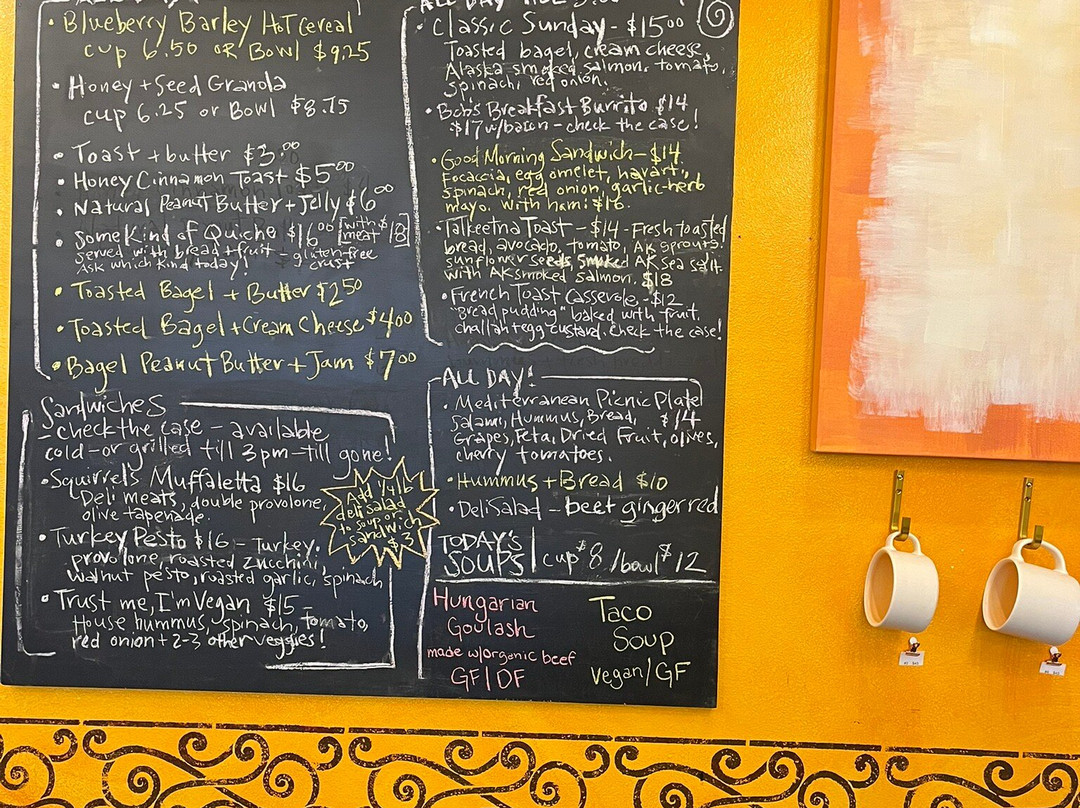 • Blueberry Barley Hot Cereal
cup 6.50 or Bowl $9.25
• Honey + Seed Granola
cup 6.25 or Bowl $8.75
• Toast + butter $3.00
• Honey Cinnamon Toast $5.00
• Natural Peanut Butter + Jelly $6.00
• Some Kind of Quiche $16.00 [with meat $18]
served with bread + fruit - gluten-free crust
Ask which kind today!
• Toasted Bagel + Butter $2.50
• Toasted Bagel + Cream Cheese $4.00
• Bagel Peanut Butter + Jam $7.00
Sandwiches
- check the case - available
cold - or grilled till 3pm - till gone!
• Squirrel's Muffaletta $16
Deli meats, double provolone,
olive tapenade.
• Turkey Pesto $16 - Turkey,
provolone, roasted zucchini,
walnut pesto, roasted garlic, spinach
• Trust me, I'm Vegan $15
House hummus, spinach, tomato,
red onion + 2-3 other veggies!
Add 1/4 lb
deli salad
to soup or
sandwich
$3
ALL DAY
• Classic Sunday - $15.00
Toasted bagel, cream cheese,
Alaska smoked salmon, tomato,
spinach, red onion.
• Bob's Breakfast Burrito $14
$17 w/bacon - check the case!
• Good Morning Sandwich - $14
Focaccia, egg omelet, havarti,
spinach, red onion, garlic-herb
mayo. with ham: $16.
• Talkeetna Toast - $14 - Fresh toasted
bread, avocado, tomato, AK sprouts,
sunflower seeds, smoked AK sea salt
with AK smoked salmon. $18
• French Toast Casserole - $12
"Bread pudding" baked with fruit,
challah + egg custard. check the case!
ALL DAY!
• Mediterranean Picnic Plate
Salami, Hummus, Bread, $14
Grapes, Feta, Dried Fruit, olives,
cherry tomatoes.
• Hummus + Bread $10
• Deli Salad - beet ginger red
TODAY'S
SOUPS | cup $8 / bowl $12
Hungarian
Goulash
made w/organic beef
GF/DF
Taco
Soup
Vegan/GF